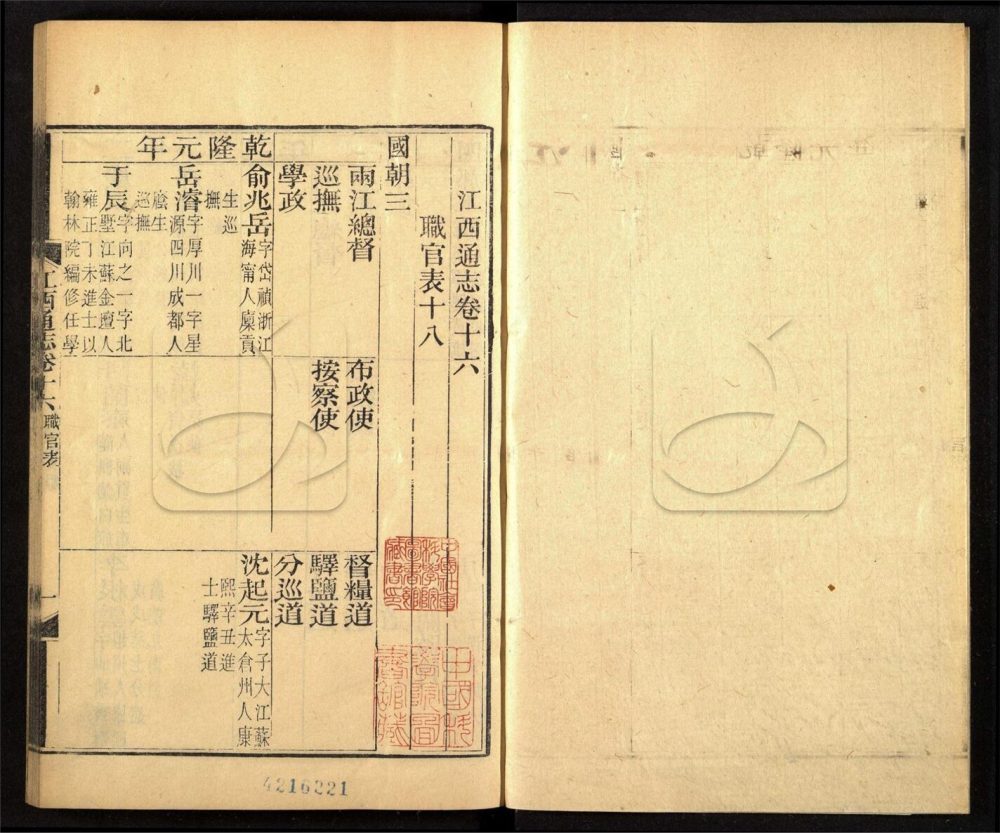 江西通志卷十六
職官表十八
國朝三
兩江總督
巡撫
學政
布政使
按察使
督糧道
驛鹽道
分巡道
乾隆元年
俞兆岳字岱禎浙江
海甯人廩貢
生巡
撫
岳濬字厚川一字星
源四川成都人
廕生
巡撫
于辰字向之一字北
墅江蘇金壇人
雍正丁未進士以
翰林院編修任學
沈起元字子大江蘇
太倉州人康
熙辛丑進
士驛鹽道
江西通志卷十六 職官表
一
4216221